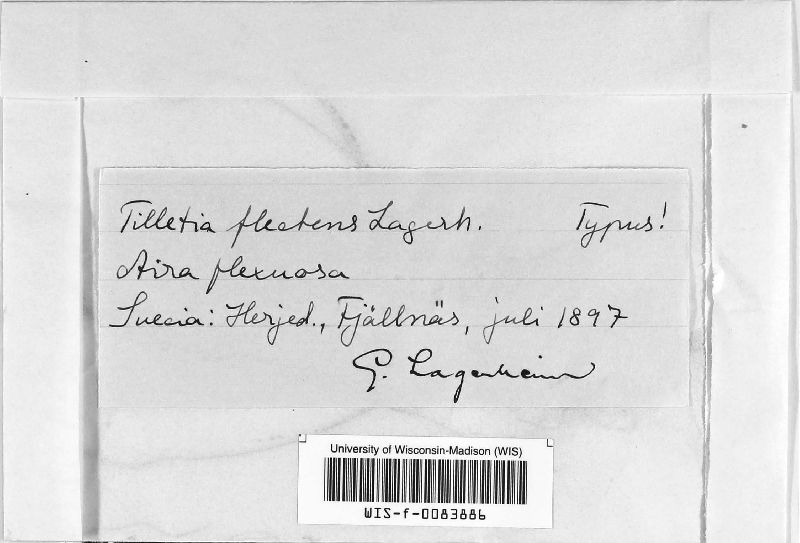 Tilletia flectens Lagerh. Typus!
Aira flexuosa
Suecia: Herjed., Fjällnäs, juli 1897
G. Lagerheim
University of Wisconsin-Madison (WIS)
WIS-f-0083886